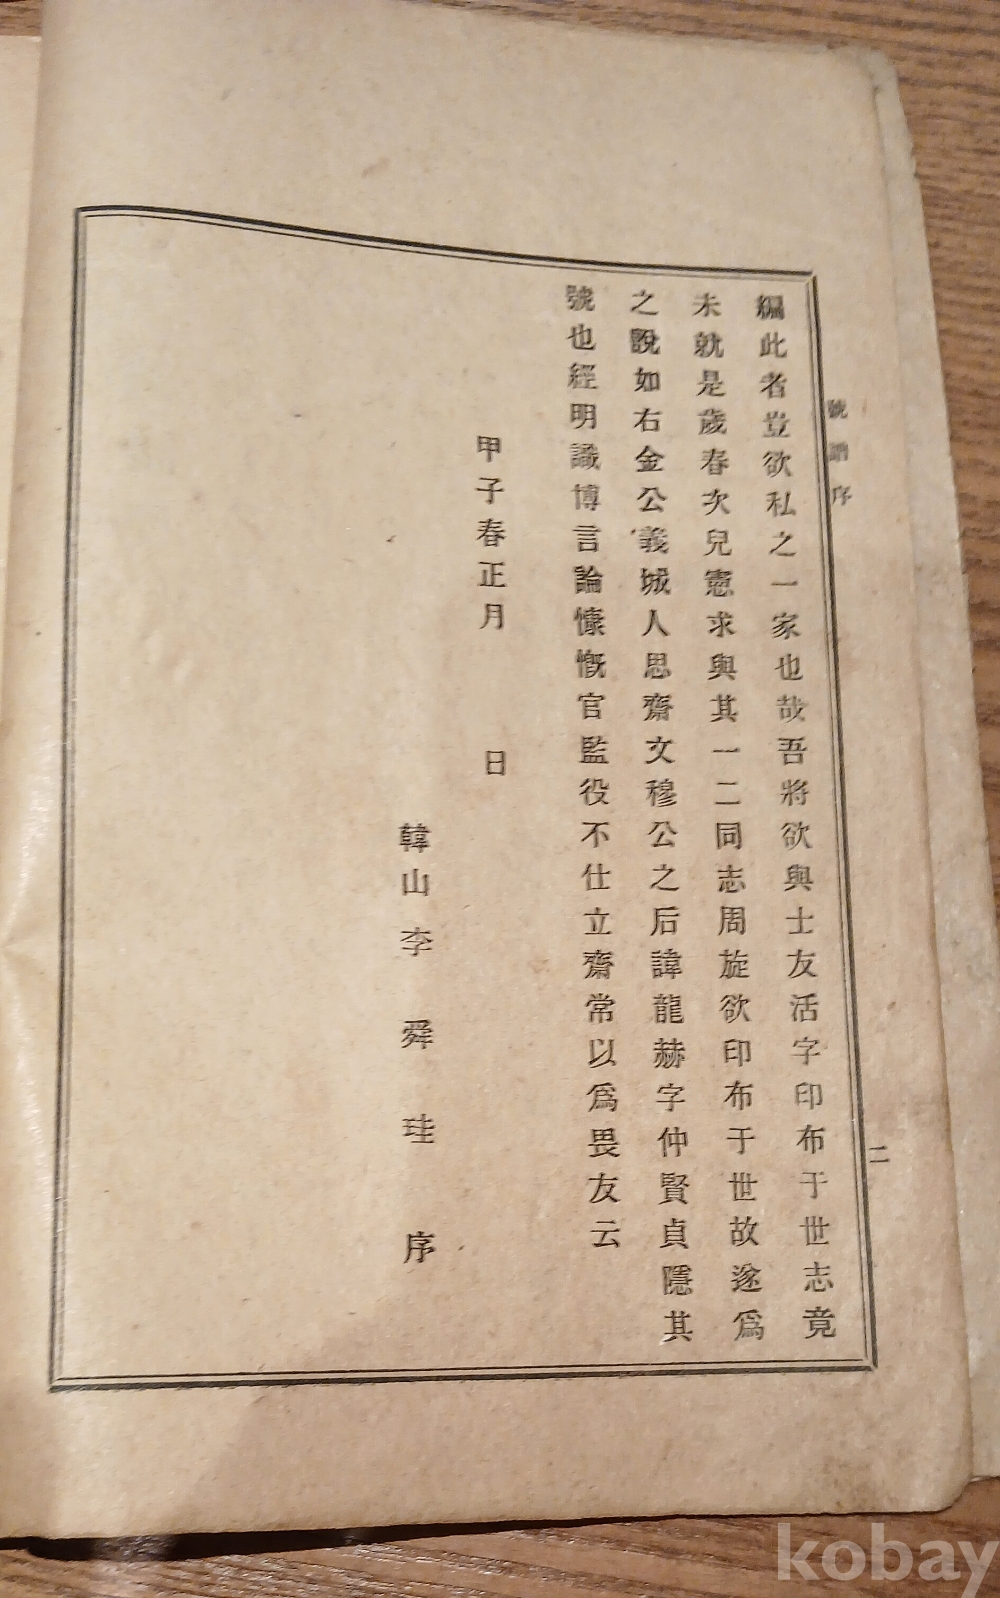 號譜序
二
編此者豈欲私之一家也哉吾將欲與士友活字印布于世志竟
未就是歲春次兒憲求與其一二同志周旋欲印布于世故遂爲
之說如右金公義城人思齋文穆公之后諱龍赫字仲賢貞隱其
號也經明識博言論慷慨官監役不仕立齋常以爲畏友云
甲子春正月 日
韓山李舜珪 序
kobay